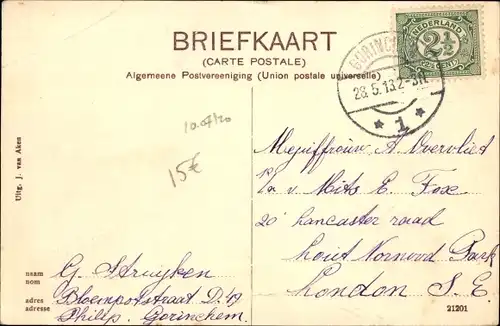 BRIEFKAART
(CARTE POSTALE)
Algemeene Postvereeniging (Union postale universelle)
NEDERLAND
2½
CENT
GORINCHEM
28.5.13.2-3N
* 1 *
15€
Uitg. J. van Aken
Mejuffrouw A. Overvliet
p/a v. Miss E. Fox
20 Lancaster road
West Norwood Park
London S. E.
naam
nom
G. Struyken
adres
adresse
Bloempotstraat D. 49
Philip. Gorinchem.
21201